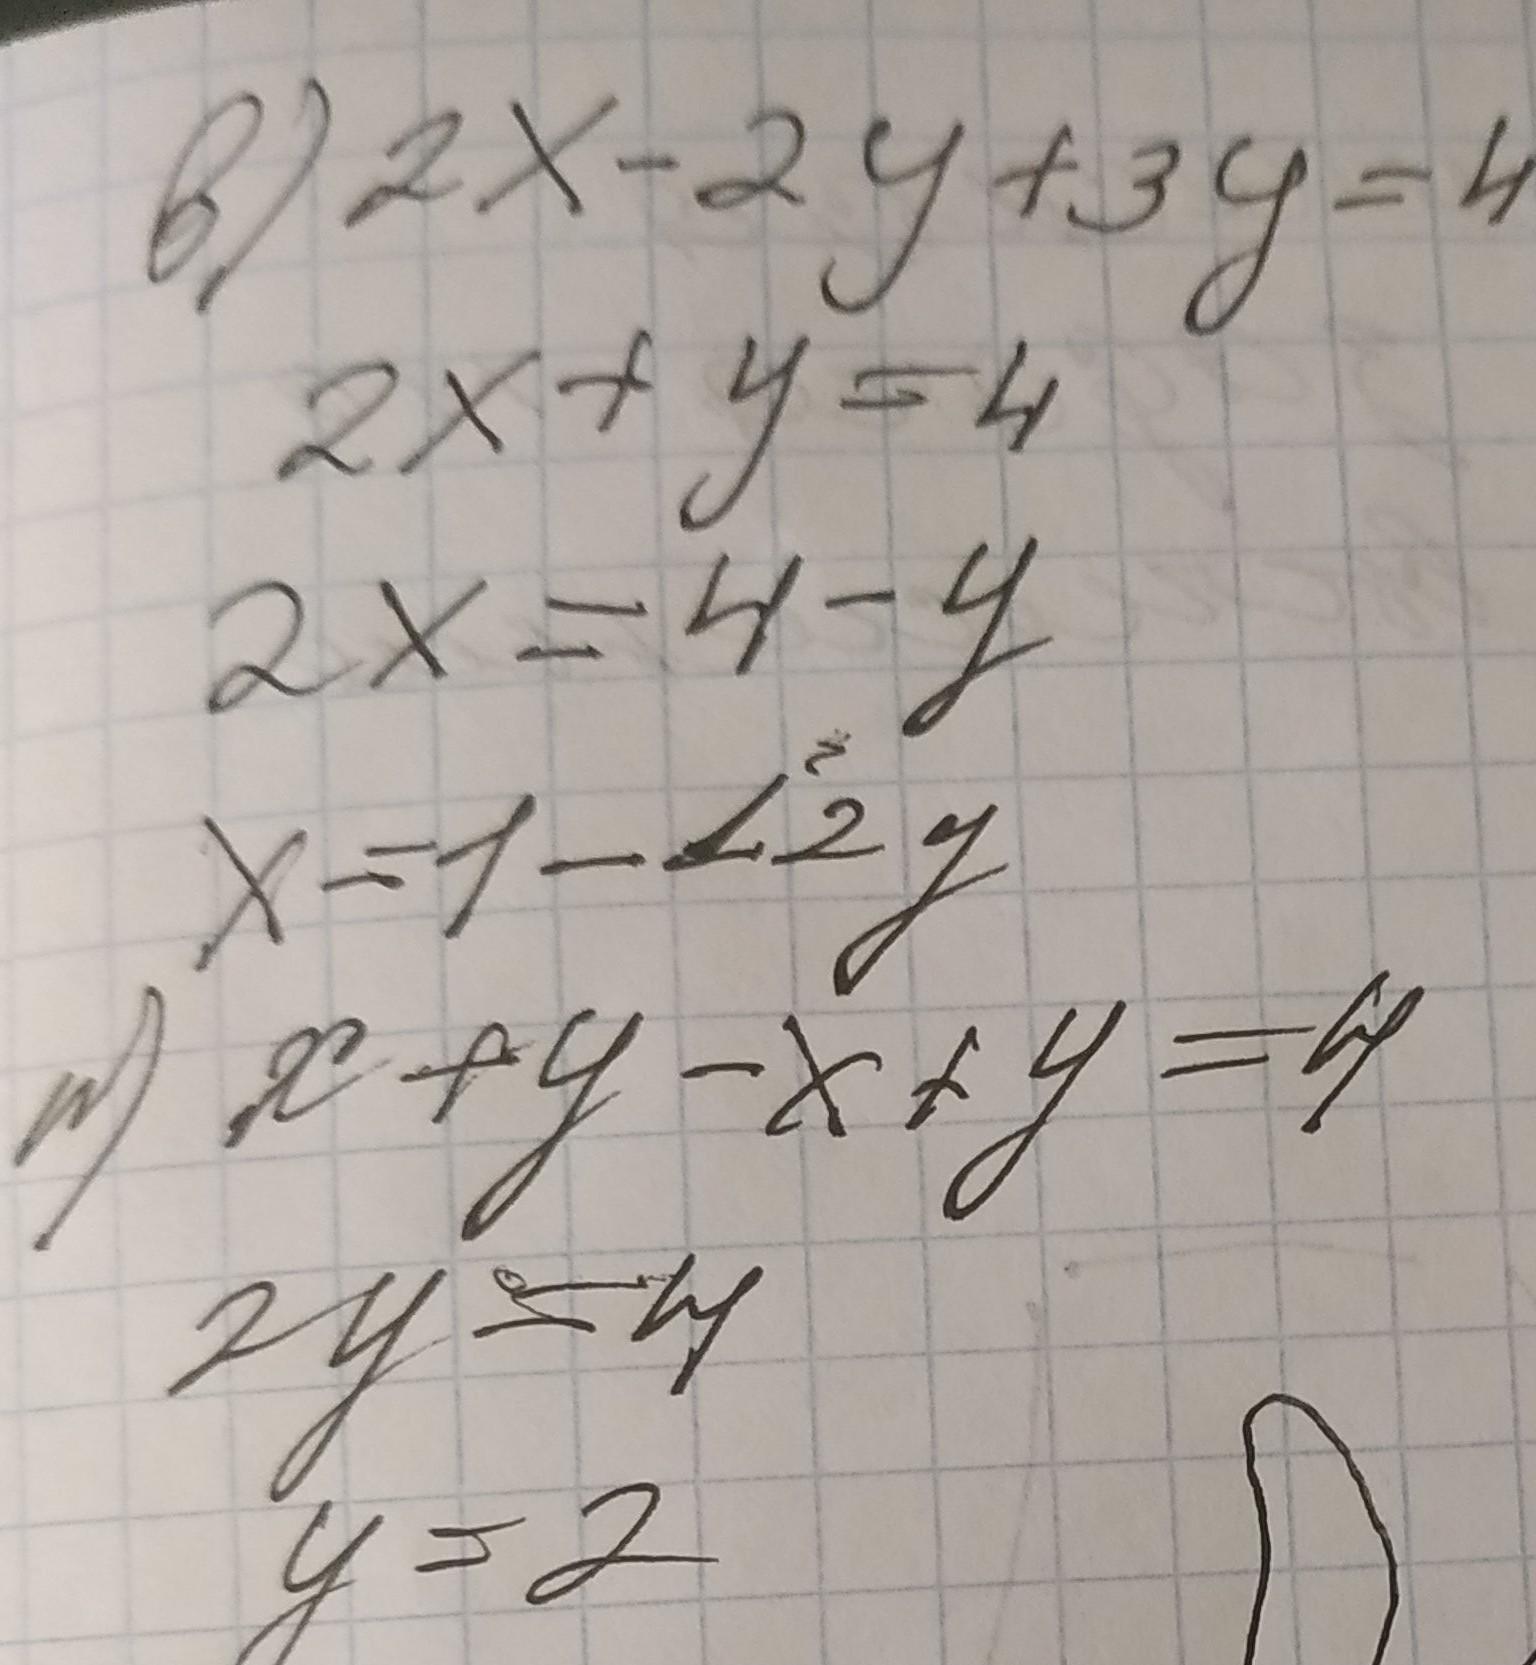 в) 2x - 2y + 3y = 4
2x + y = 4
2x = 4 - y
x = 1 - 2y
г) x + y - x + y = 4
2y = 4
y = 2